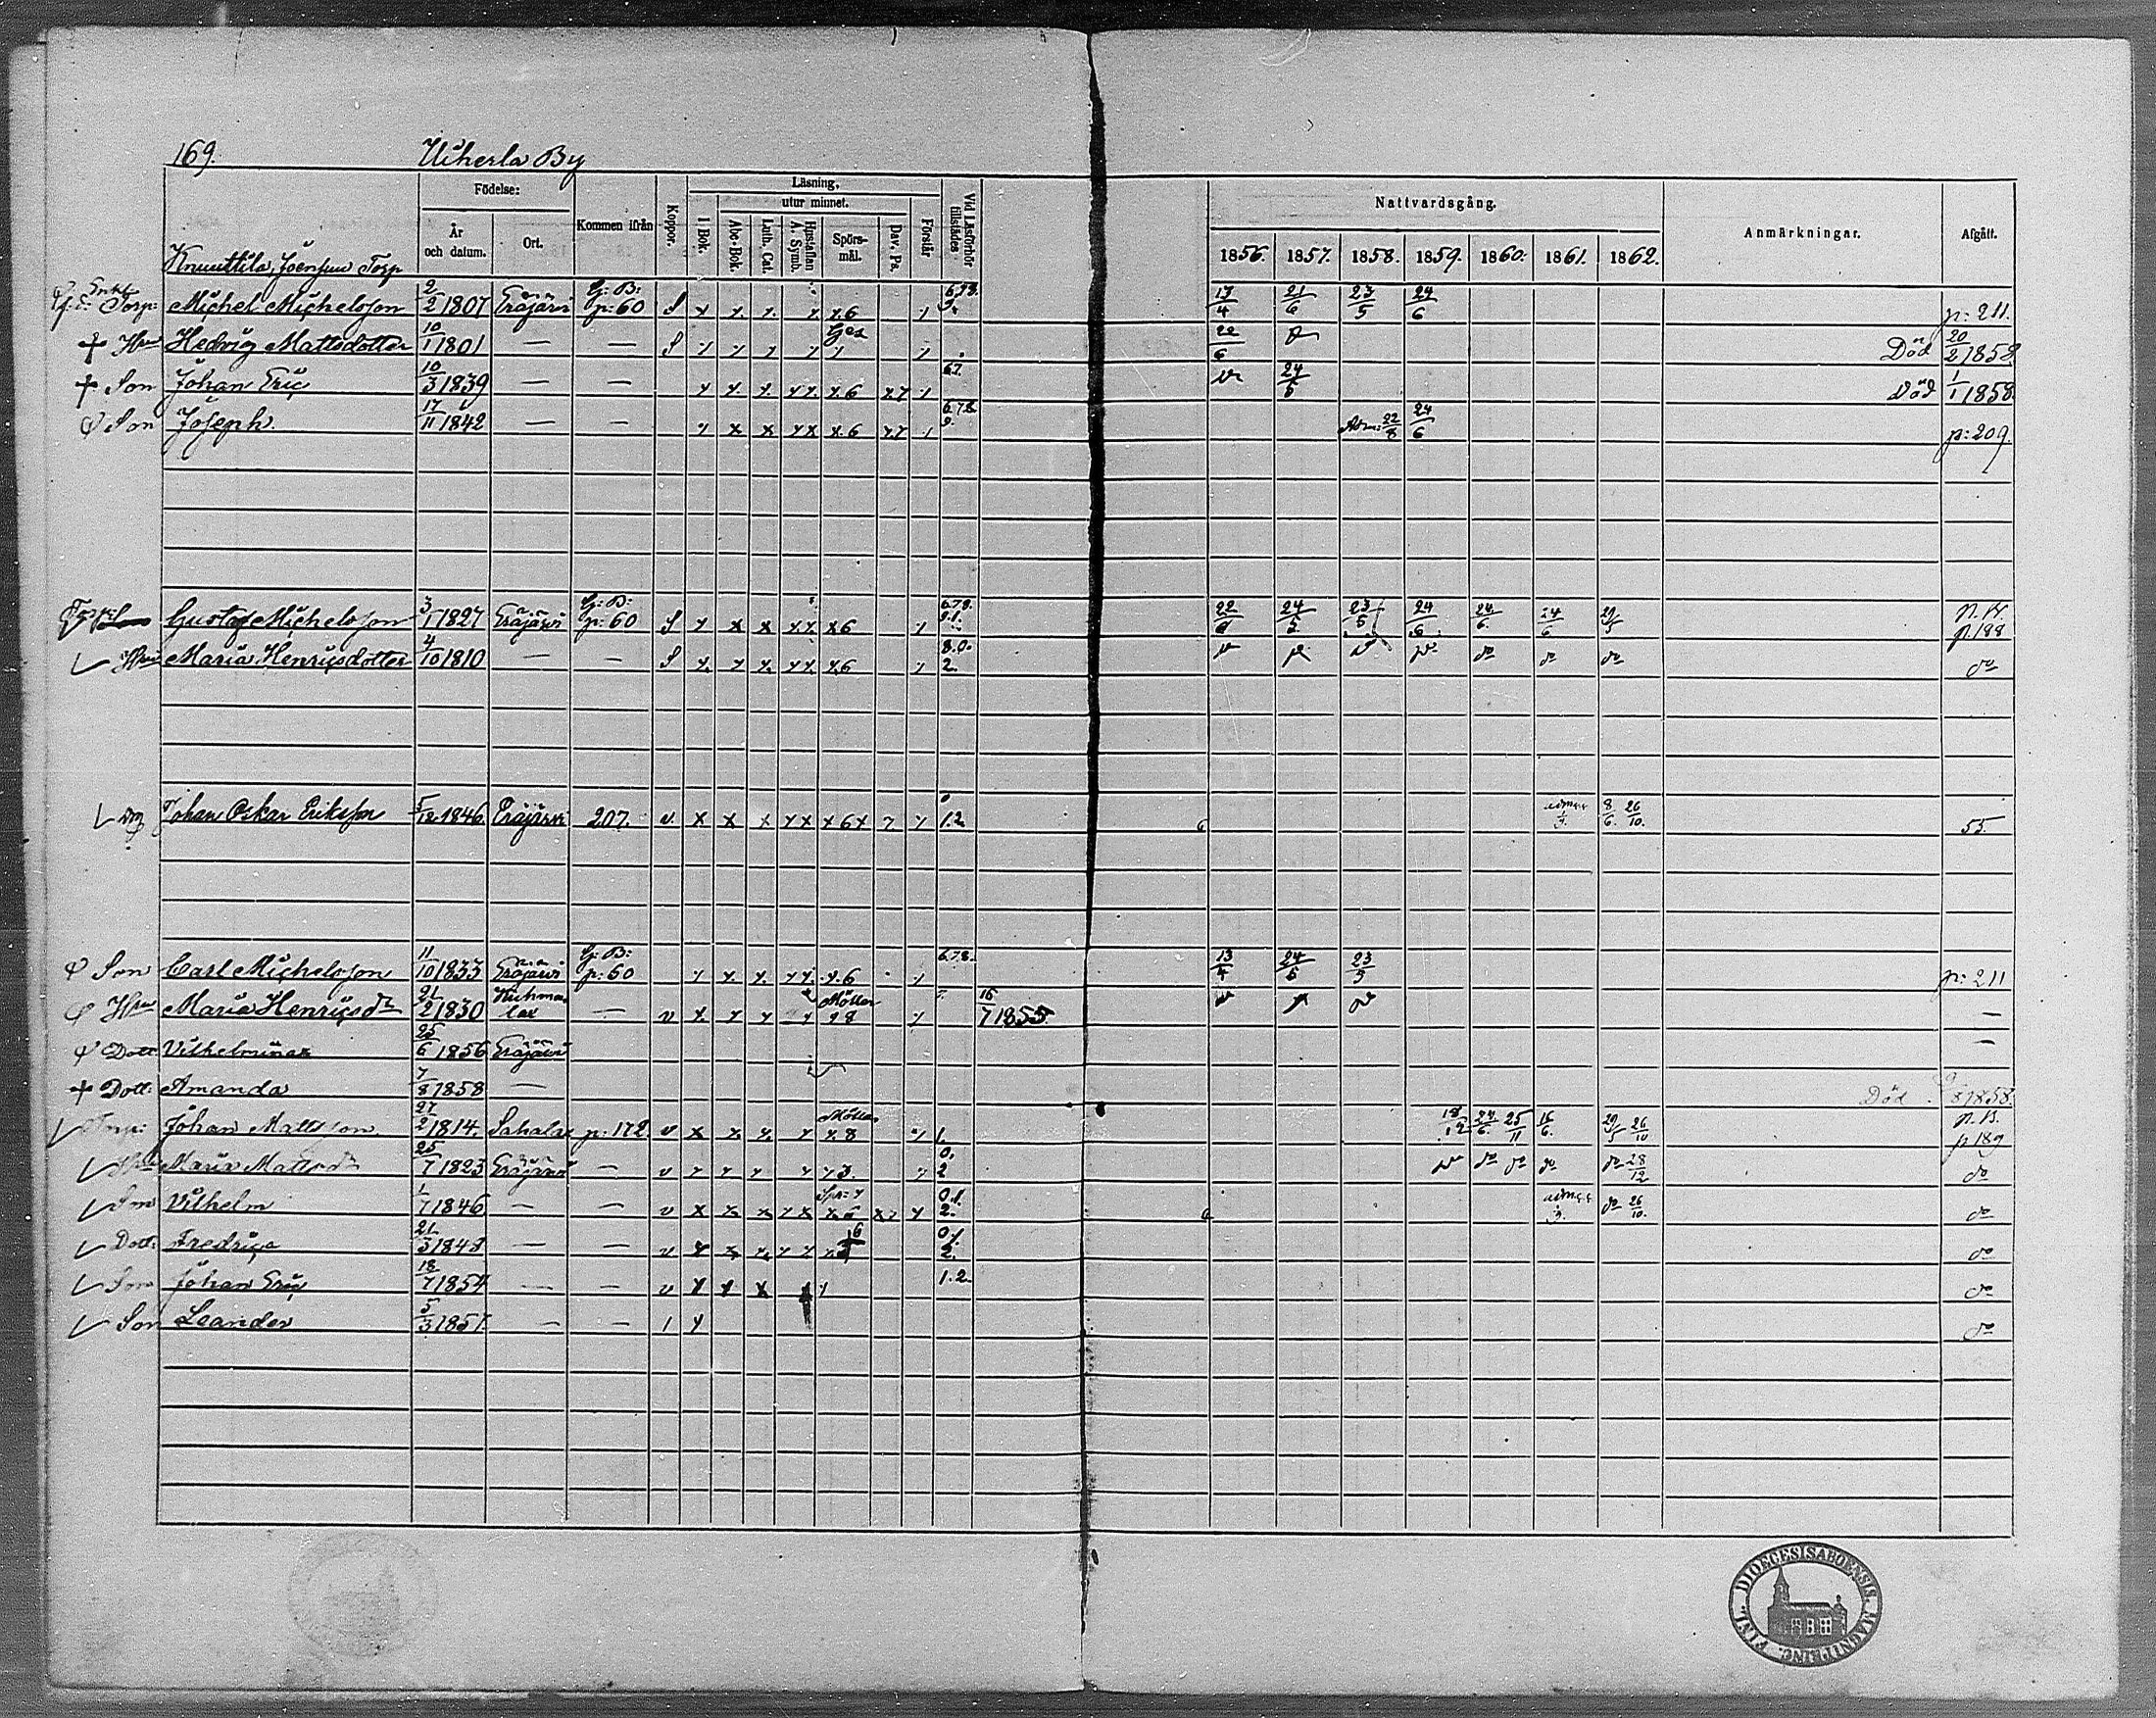 169. Uiherla By
Födelse: Läsning, Nattvardsgång.
utur minnet.
År och datum. Ort. Kommen ifrån Koppor. I Bok. Abc-Bok. Luth. Cat. Hustaflan A. Symb. Spörsmål. Dav. Ps. Förstår Vid Läsförhör tillstädes 1856. 1857. 1858. 1859. 1860. 1861. 1862. Anmärkningar. Afgått.
Knuuttila, Joensuu Torp
Enkl. Torp: Michel Michelsson 2/2 1807 Eräjärvi G: B: p: 60 S 6.7.8. 9. 13/4 21/6 23/5 24/6 p: 211.
+ Hu Hedvig Mattsdotter 10/1 1801 — — S 22/6 Död 20/2 1858
+ Son Johan Eric 10/3 1839 — — 6 67. 24/5 Död 1/1 1858.
Son Joseph 17/11 1842 — — 6 6.7.8. 9. Adm: 22/8 24/6 p: 209.
Gustaf Michelsson 3/1 1827 Eräjärvi G: B: p: 60 S x6 22/6 24/5 23/5 24/6 24/6. 24/6 29/5 p. 188
Hu Maria Henricsdotter 4/10 1810 — — S x6 8.0. 2. do do do do
Johan Oskar Eriksson 5/12 1846. Eräjärvi 207. v. 1.2. 8/6. 26/10. 55.
Son Carl Michelsson 11/10 1833 Eräjärvi G: B: p: 60 x.6 6.7.8. 13/4 24/5 23/5 p: 211
Hu Maria Henricsdr 21/2 1830 Kuhmalax — v 8 16/7 1855. —
Dott: Vilhelmina 25/6 1856 Eräjärvi —
+ Dott: Amanda 7/8 1858 — Död 1858.
Torp: Johan Mattsson 27/2 1814. Sahalax p: 172. v x.8 1. 18/12 24/6. 25/11 16/6. 29/5 26/10 p 189
Hu Maria Mattsdr 25/7 1823 Eräjärvi — v 0. 2 do do do do 28/12 do
Son Vilhelm 1/7 1846 — — v 0.1. 2. do 26/10. do
Dott: Fredrica 21/3 1848 — — v 0.1. 2. do
Son Johan Eric 18/7 1854 — — v 1.2. do
Son Leander 5/3 1857. — — do
FINL. DIOECESIS ABOENSIS. MAGNI DUCAT.